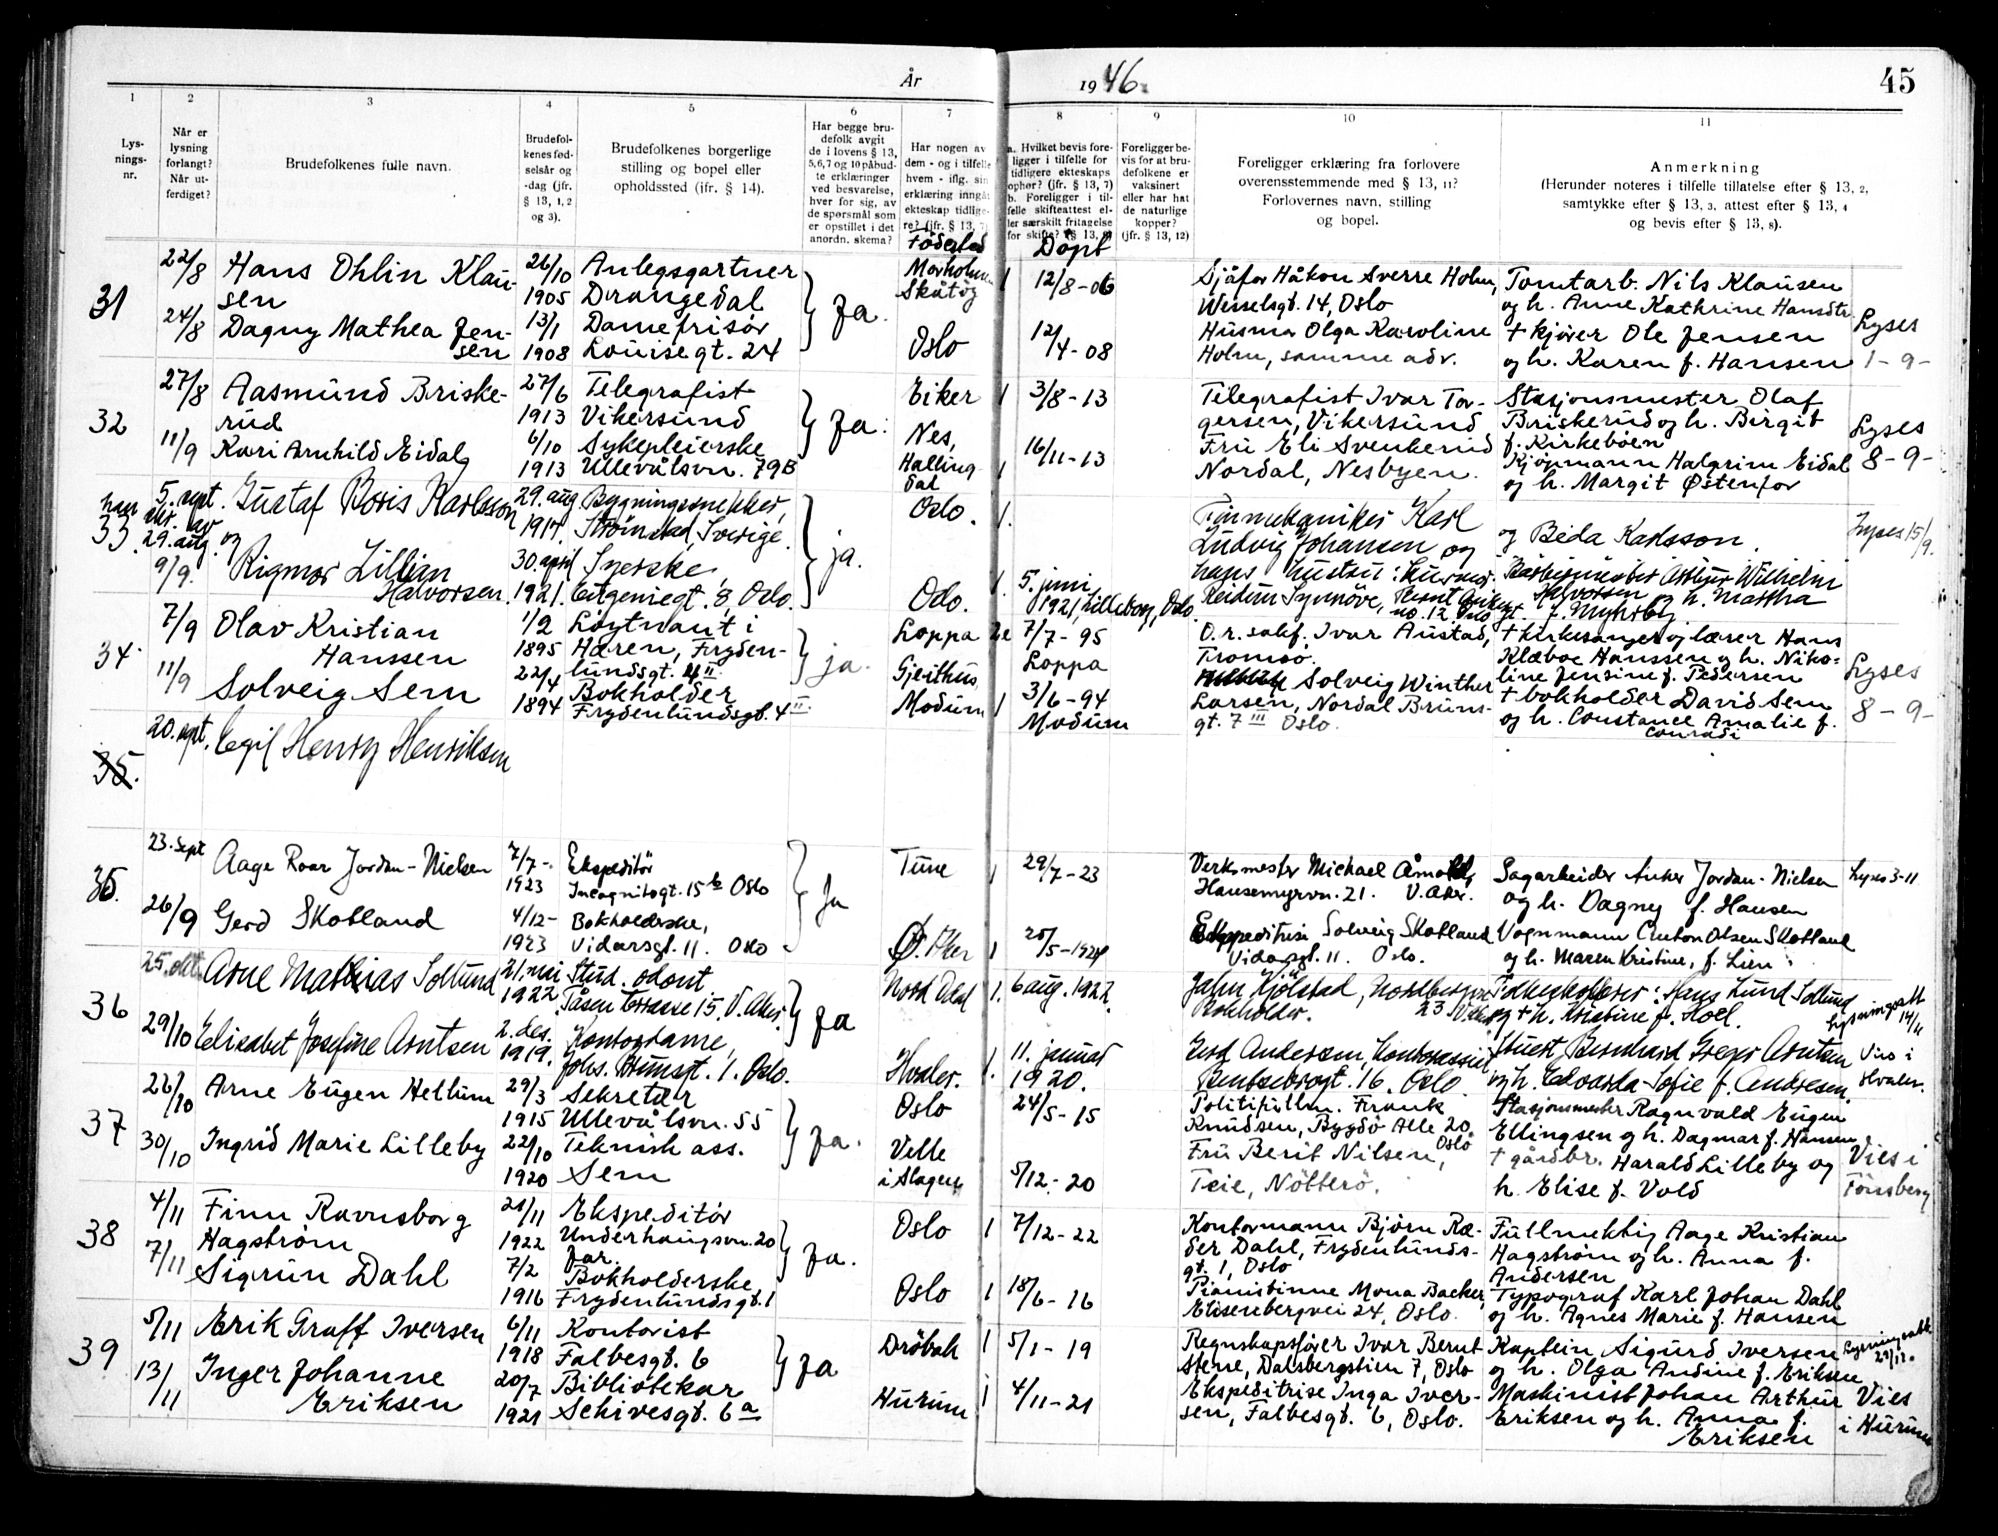 År 1946.
45
1
2
3
4
5
6
7
8
9
10
11
Lys-
nings-
nr.
Når er
lysning
forlangt?
Når ut-
ferdiget?
Brudefolkenes fulle navn.
Brudefol-
kenes fød-
selsår og
-dag (jfr.
§ 13, 1, 2
og 3).
Brudefolkenes borgerlige
stilling og bopel eller
opholdssted (ifr. § 14).
Har begge bru-
defolk avgit
de i lovens § 13,
5, 6, 7 og 10 påbud-
te erklæringer
ved besvarelse,
hver for sig, av
de spørsmål som
er opstillet i det
anordn. skema?
Har nogen av
dem - og i tilfelle
hvem - iflg. sin
erklæring inngåt
ekteskap tidlige-
re? (jfr. § 13, 7)
Fødested
a. Hvilket bevis fore-
ligger i tilfelle for
tidligere ekteskaps
ophør? (jfr. § 13, 7)
b. Foreligger i til-
felle skifteattest el-
ler særskilt fritagelse
for skifte?
Døpt
Foreligger be-
vis for at bru-
defolkene er
vaksinert
eller har hat
de naturlige
kopper?
(jfr. § 13, 12)
Foreligger erklæring fra forlovere
overensstemmende med § 13, 11?
Forlovernes navn, stilling
og bopel.
Anmerkning
(Herunder noteres i tilfelle tillatelse efter § 13, 2,
samtykke efter § 13, 3, attest efter § 13, 4
og bevis efter § 13, 8).
31
22/8
24/8
Hans Ohlin Klau-
sen
Dagny Mathea Jen-
sen
26/10
1905
13/1
1908
Anlegsgartner
Drangedal
Damefrisør
Louisegt. 24
Ja.
Skåtøy
Oslo
1
12/8-06
12/4-08
Sjåfør Håkon Sverre Holm,
Wesselsgt. 14, Oslo
Husmor Olga Karoline
Holm, samme adr.
Tomtarb. Nils Klausen
og h. Anne Kathrine Hansdtr.
+ kjører Ole Jensen
og h. Karen f. Hansen
Lyses
1-9-
32
27/8
11/9
Aasmund Briske-
rud
Kari Arnhild Eidal
27/6
1913
6/10
1913
Telegrafist
Vikersund
Sykepleierske
Ullevålsvn. 79B
Ja.
Eiker
Nes,
Halling-
dal
1
1
3/8-13
16/11-13
Telegrafist Ivar Tor-
gersen, Vikersund
Fru Eli Svenkerud
Nordal, Nesbyen.
Stasjonsmester Olaf
Briskerud og h. Birgit
f. Kirkebøen
Kjøpmann Halgrim Eidal
og h. Margit Østenfor
Lyses
8-9-
33.
5. sept.
29. aug.
9/9.
Gustaf Boris Karlsson
og
Rigmor Lillian
Halvorsen.
29. aug.
30. april
1921.
Bygningssnekker,
Strömstad, Sverige.
Syerske,
8, Oslo.
ja.
Oslo.
Oslo.
1.
1.
5. juni
1921, Lilleborg, Oslo.
Finmekaniker Karl
Ludvig Johansen og
hans hustru: husmor
Reidun Synnøve,
no. 12 Oslo
og Beda Karlsson.
Barbermester Arthur Wilhelm
Halvorsen og h. Martha
f. Myhrby
Lyses 15/9.
34
7/9
11/9
Olav Kristian
Hanssen
Solveig Sem
1/2
1895
22/4
1894
Løytnant i
Hæren, Fryden-
lundsgt. 4 II
Bokholder
Frydenlundsgt. 4 II
ja.
Loppa
Gjeithus,
Modum
1
7/7-95
Loppa
3/6-94
Modum
O.r.sakf. Ivar Austad,
Tromsø.
Solveig Winther
Larsen, Nordal Bruns-
gt. 7 III Oslo.
+ kirkesanger og lærer Hans
Klæboe Hanssen og h. Niko-
line Jensine f. Pedersen
+ bokholder David Sem
og h. Constance Amalie f.
Conradi
Lyses
8-9-
35.
20. sept.
Egil Henry Henriksen
35.
23. sept
26/9
Aage Roar Jordan-Nielsen
Gerd Skotland
7/7-
1923
4/12-
1923
Ekspeditør
Incognitogt. 15 b Oslo
Bokholderske,
Vidarsgt. 11. Oslo
Ja
Tune
Ø. Aker
1
1
29/7-23
25/5-1924
Verksmester Michael
Hansemyrvn. 21. V. Aker.
Ekspeditrise Solveig Skotland
Vidarsgt. 11. Oslo.
Sagarbeider Anker Jordan-Nielsen
og h. Dagny f. Hansen
Vognmann Anton Olsen Skotland
og h. Maren Kristine, f. Lien
Lyses 3-11
36
25. okt.
29/10
Arne Mathias Sollund
Elisabet Josefine Arntsen
21. mai
1922.
2. des.
1919.
Stud. odont.
Tåsen Terrasse 15, V. Aker.
Kontordame,
1. Oslo.
Ja
Nord Odal
Hvaler.
1.
1.
6 aug. 1922
11. januar
1920.
Bokholder.
Gerd Andersen,
Bentsebrogt. 16. Oslo
Hans Lund Solland
og + h. Kristine f. Hoel.
Bernhard Greger Arntsen
og h. Edvarda Sofie f. Andresen.
Lysningsatt
14/11
Vies i
Hvaler.
37
26/10
30/10
Arne Eugen Hellum
Ingrid Marie Lilleby
29/3
1915
22/10
1920
Sekretær
Ullevålsvn. 55
Teknisk ass.
Sem
Ja.
Oslo
Velle
i Slagen
24/5-15
5/12-20
Politifullm. Frank
Knudsen, Bygdø Alle 20,
Oslo
Fru Berit Nilsen,
Teie, Nøtterø.
Stasjonsmester Ragnvald Eugen
Ellingsen og h. Dagmar f. Hansen
+ gårdbr. Harald Lilleby og
h. Elise f. Vold
Vies i
Tönsberg
38
4/11
7/11
Finn Ravnsborg
Hagstrøm
Sigrun Dahl
21/11
1922
7/2
1916
Ekspeditør
Underhaugsvn. 20
Bokholderske
Frydenlundsgt. 1
Ja.
Oslo
Oslo
1
1
7/12-22
18/6-16
Kontormann Bjørn Ræ-
der Dahl, Frydenlunds-
gt. 1, Oslo
Pianistinne Mona Backer,
Elisenbergvei 24, Oslo.
Fullmektig Aage Kristian
Hagstrøm og h. Anna f.
Andersen
Typograf Karl Johan Dahl
og h. Agnes Marie f. Hansen
39
5/11
13/11
Erik Graff Iversen
Inger Johanne
Eriksen
6/11
1918
20/7
1921
Kontorist
Falbesgt. 6
Bibliotekar
Schivesgt. 6 a
Ja
Drøbak
Hurum
1
1
5/1-19
4/11-21
Regnskapsfører Ivar Bernt
Stene, Dalsbergstien 7, Oslo
Ekspeditrise Inga Iver-
sen, Falbesgt. 6, Oslo.
Kaptein Sigurd Iversen
og h. Olga Andine f. Eriksen
Maskinist Johan Arthur
Eriksen og h. Anna f.
Eriksen
Vies
i Hurum